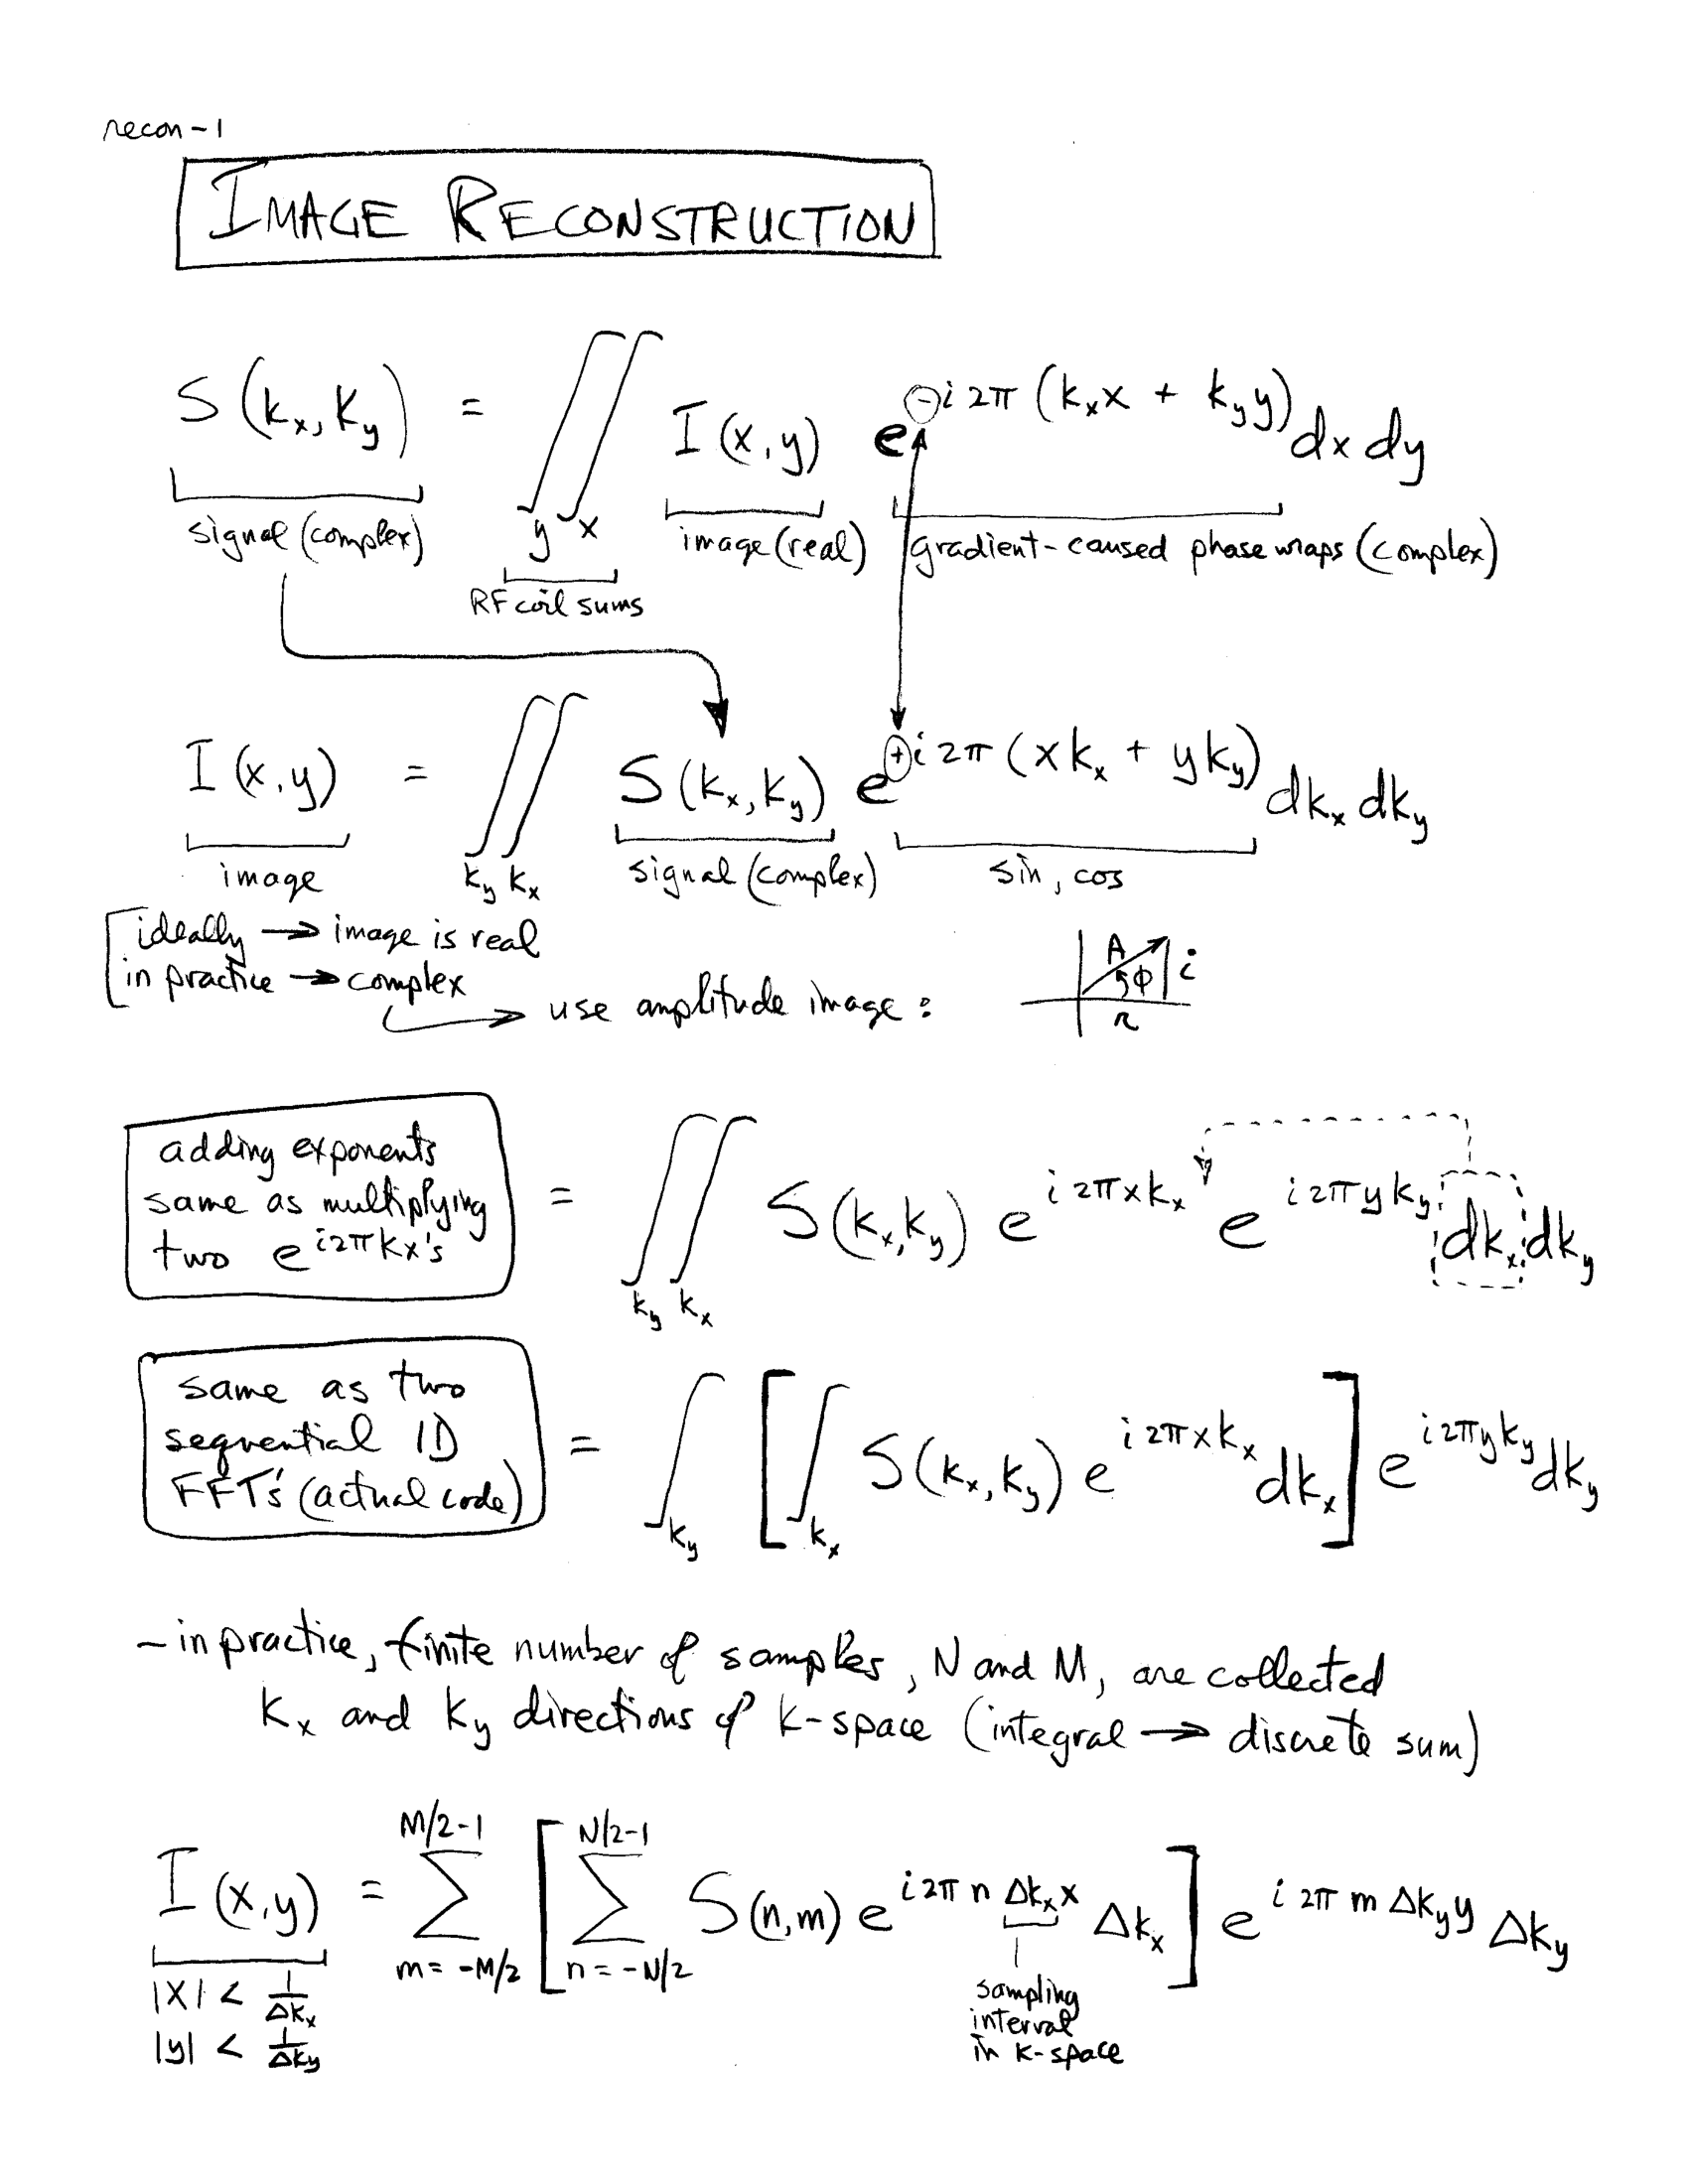 recon-1
IMAGE RECONSTRUCTION
S(kx, ky) = ∬ I(x,y) e^{-i2π(kxx + kyy)} dx dy
signal (complex)
y x
RF coil sums
image (real)
gradient-caused phase wraps (complex)
I(x,y) = ∬ S(kx, ky) e^{+i2π(xkx + yky)} dkx dky
image
ky kx
signal (complex)
sin, cos
ideally → image is real
in practice → complex
use amplitude image:
A
ϕ
i
r
adding exponents
same as multiplying
two e^{i2πkx}'s
= ∬ S(kx,ky) e^{i2πxkx} e^{i2πyky} dkx dky
ky kx
same as two
sequential 1D
FFT's (actual code)
= ∫ [∫ S(kx, ky) e^{i2πxkx} dkx] e^{i2πyky} dky
ky kx
- in practice, finite number of samples, N and M, are collected
kx and ky directions of k-space (integral → discrete sum)
M/2-1 N/2-1
I(x,y) = ∑ [∑ S(n,m) e^{i2π n Δkxx} Δkx] e^{i2π m Δkyy} Δky
m= -M/2 n= -N/2
|x| < 1/Δkx
|y| < 1/Δky
sampling
interval
in k-space